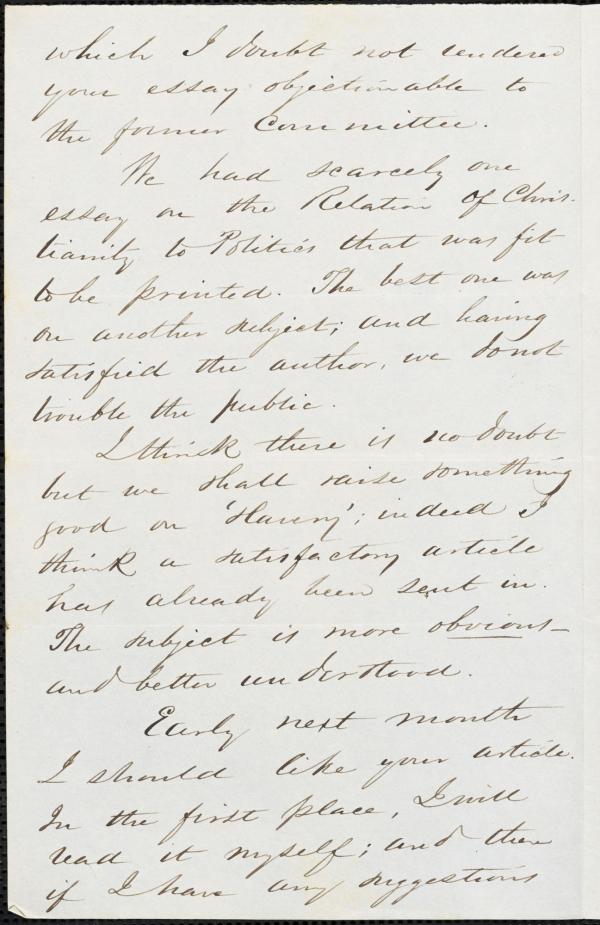 which I doubt not rendered
your essay objectionable to
the former Committee.
We had scarcely one
essay on the Relation of Chris-
tianity to Politics that was fit
to be printed. The best one was
on another subject; and having
satisfied the author, we do not
trouble the public.
I think there is no doubt
but we shall raise something
good on 'Slavery'; indeed I
think a satisfactory article
has already been sent in.
The subject is more obvious—
and better understood.
Early next month
I should like your article.
In the first place, I will
read it myself; and then
if I have any suggestions